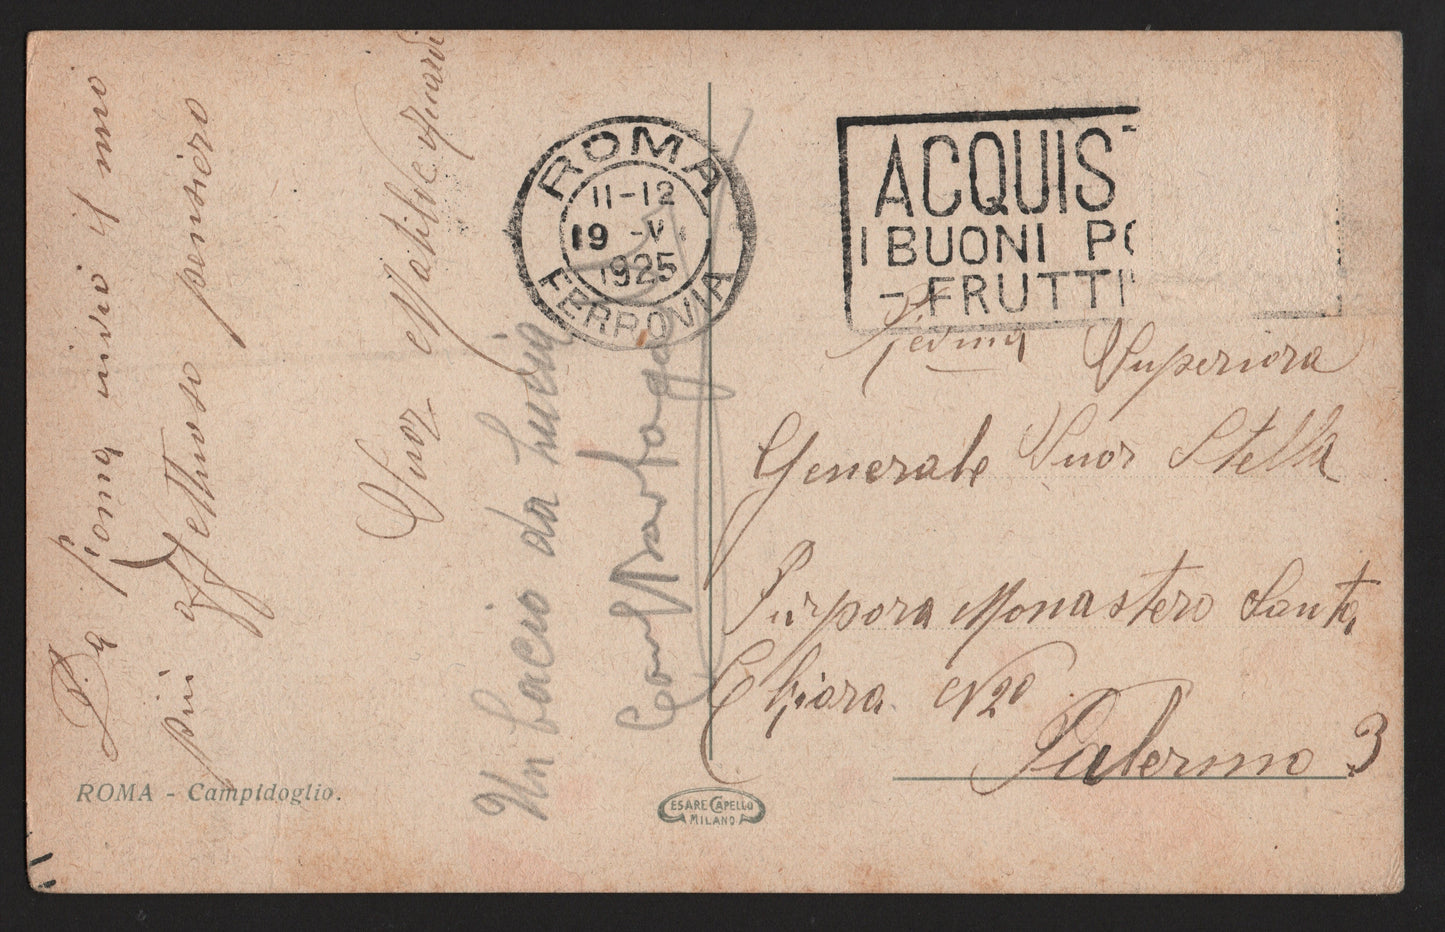 Da Roma invio il mio
più affettuoso pensiero
Suor Matilde
Un bacio da Lucia
ROMA
11-12
19 -V
1925
FERROVIA
ACQUIST
I BUONI PO
- FRUTTI
Superiora
Generale Suor Stella
Purpora Monastero Santa
Chiara N 2º
Palermo 3
ROMA - Campidoglio.
CESARE CAPELLO
MILANO